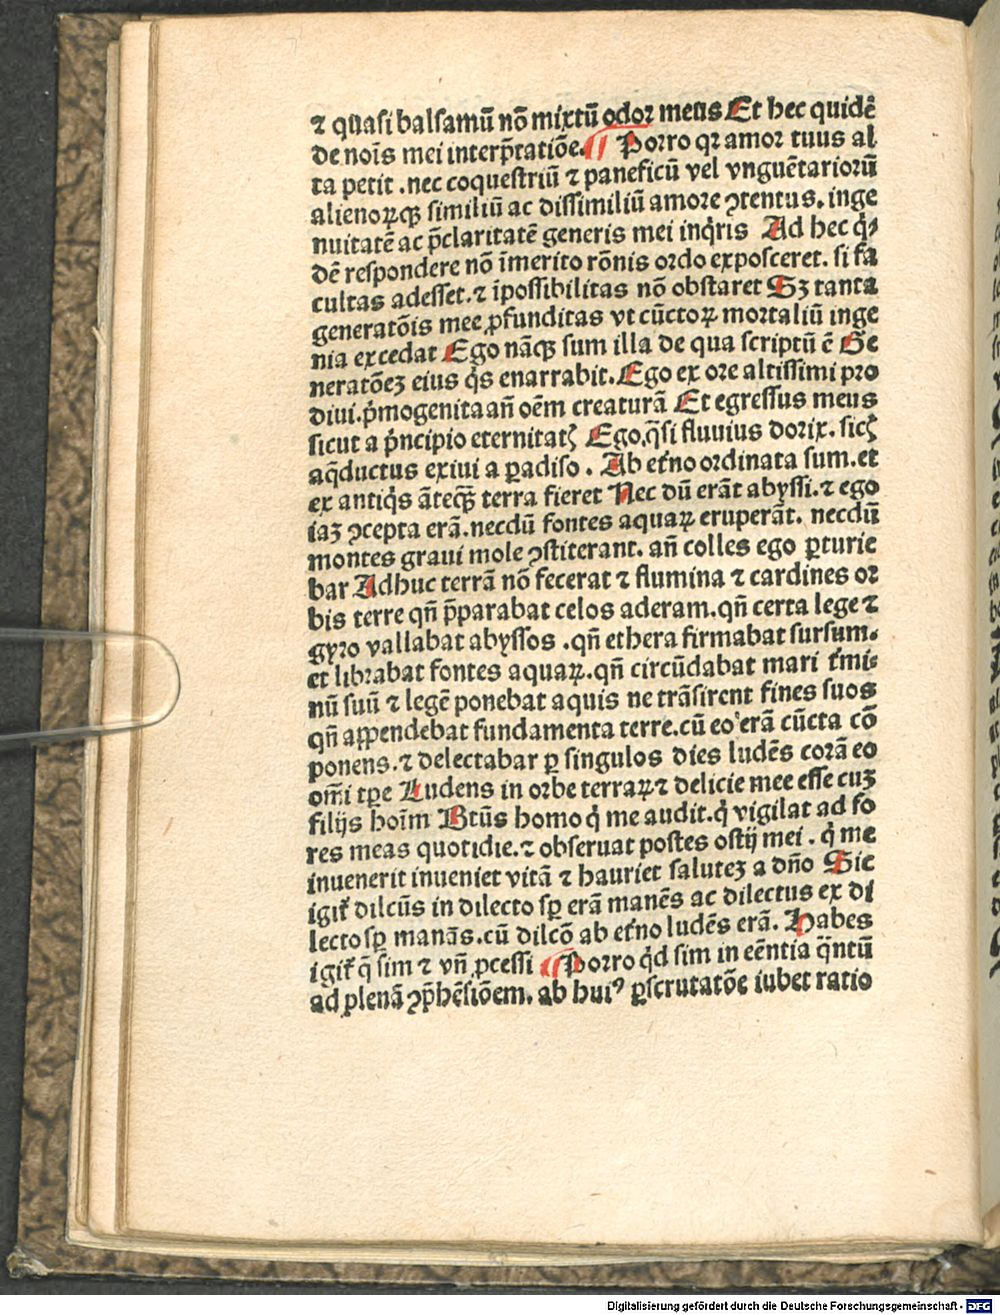 ⁊ quasi balsamū nō mixtū odoꝛ meus Et hec quidē
de noīs mei interp̄tatiōe. Poꝛro qꝛ amoꝛ tuus al
ta petit .nec coquestriū ⁊ paneficū vel vnguētarioꝛū
alienoꝝqꝫ similiū ac dissimiliū amoꝛe ꝯtentus. inge
nuitatē ac p̄claritatē generis mei inq̇ris Ad hec q̇ꝰ
dē respondere nō īmerito rōnis oꝛdo exposceret. si fa
cultas adesset.⁊ īpossibilitas nō obstaret Sꝫ tanta
generatōis mee ꝓfunditas vt cūctoꝝ moꝛtaliū inge
nia excedat Ego nāqꝫ sum illa de qua scriptū ē Ge
neratōeꝫ eius q̇s enarrabit. Ego ex oꝛe altissimi pꝛo
diui.p̓mogenita an̄ oēm creaturā Et egressus meus
sicut a p̓ncipio eternitatꝭ Ego.q̄si fluuius doꝛix. sicꝭ
aq̄ductus exiui a ꝑadiso . Ab et̓no oꝛdinata sum.et
ex antiq̇s āteqꝫ terra fieret Nec dū erāt abyssi.⁊ ego
iaꝫ ꝯcepta erā.necdū fontes aquaꝝ eruperāt. necdū
montes graui mole ꝯstiterant. an̄ colles ego ꝑturie
bar Adhuc terrā nō fecerat ⁊ flumina ⁊ cardines oꝛ
bis terre qn̄ p̄parabat celos aderam.qn̄ certa lege ⁊
gyꝛo vallabat abyssos .qn̄ ethera firmabat sursum.
et libꝛabat fontes aquaꝝ.qn̄ circūdabat mari t̓mi⸗
nū suū ⁊ legē ponebat aquis ne trāsirent fines suos
qn̄ appendebat fundamenta terre.cū eo erā cūcta cō
ponens.⁊ delectabar ꝑ singulos dies ludēs coꝛā eo
om̄i tꝑe Ludens in oꝛbe terraꝝ ⁊ delicie mee esse cuꝫ
filijs hoīm Btūs homo q̇ me audit.q̇ vigilat ad fo
res meas quotidie.⁊ obseruat postes ostij mei . q̇ me
inuenerit inueniet vitā ⁊ hauriet saluteꝫ a dn̄o Sic
igit̓ dilcūs in dilecto sꝑ erā manēs ac dilectus ex di
lecto sꝑ manās.cū dilcō ab et̓no ludēs erā. Habes
igit̓ q̄ sim ⁊ vn̄ ꝓcessi Poꝛro q̇d sim in eēntia q̄ntū
ad plenā ꝯp̄hēsiōem. ab huiꝰ ꝑscrutatōe iubet ratio
Digitalisierung gefördert durch die Deutsche Forschungsgemeinschaft - DFG